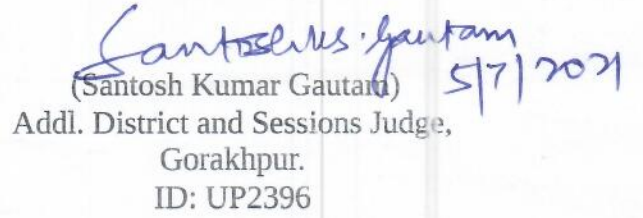 Santosh Ks. Gautam
(Santosh Kumar Gautam) 5/7/2021
Addl. District and Sessions Judge,
Gorakhpur.
ID: UP2396